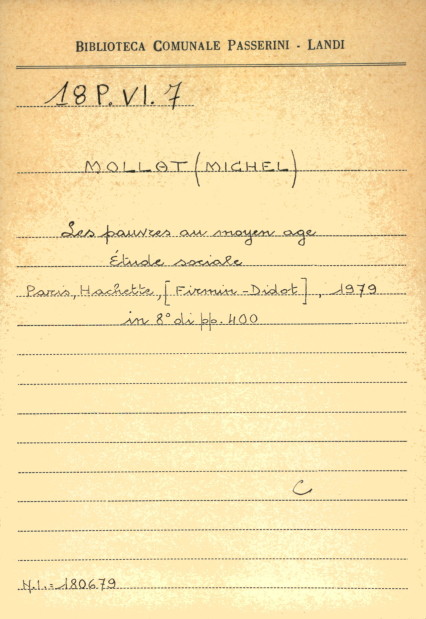 BIBLIOTECA COMUNALE PASSERINI - LANDI
18 P. VI. 7
MOLLAT (MICHEL)
Les pauvres au moyen age
Étude sociale
Paris, Hachette, [Firmin-Didot], 1979
in 8° di pp. 400
C
N.I.= 180679